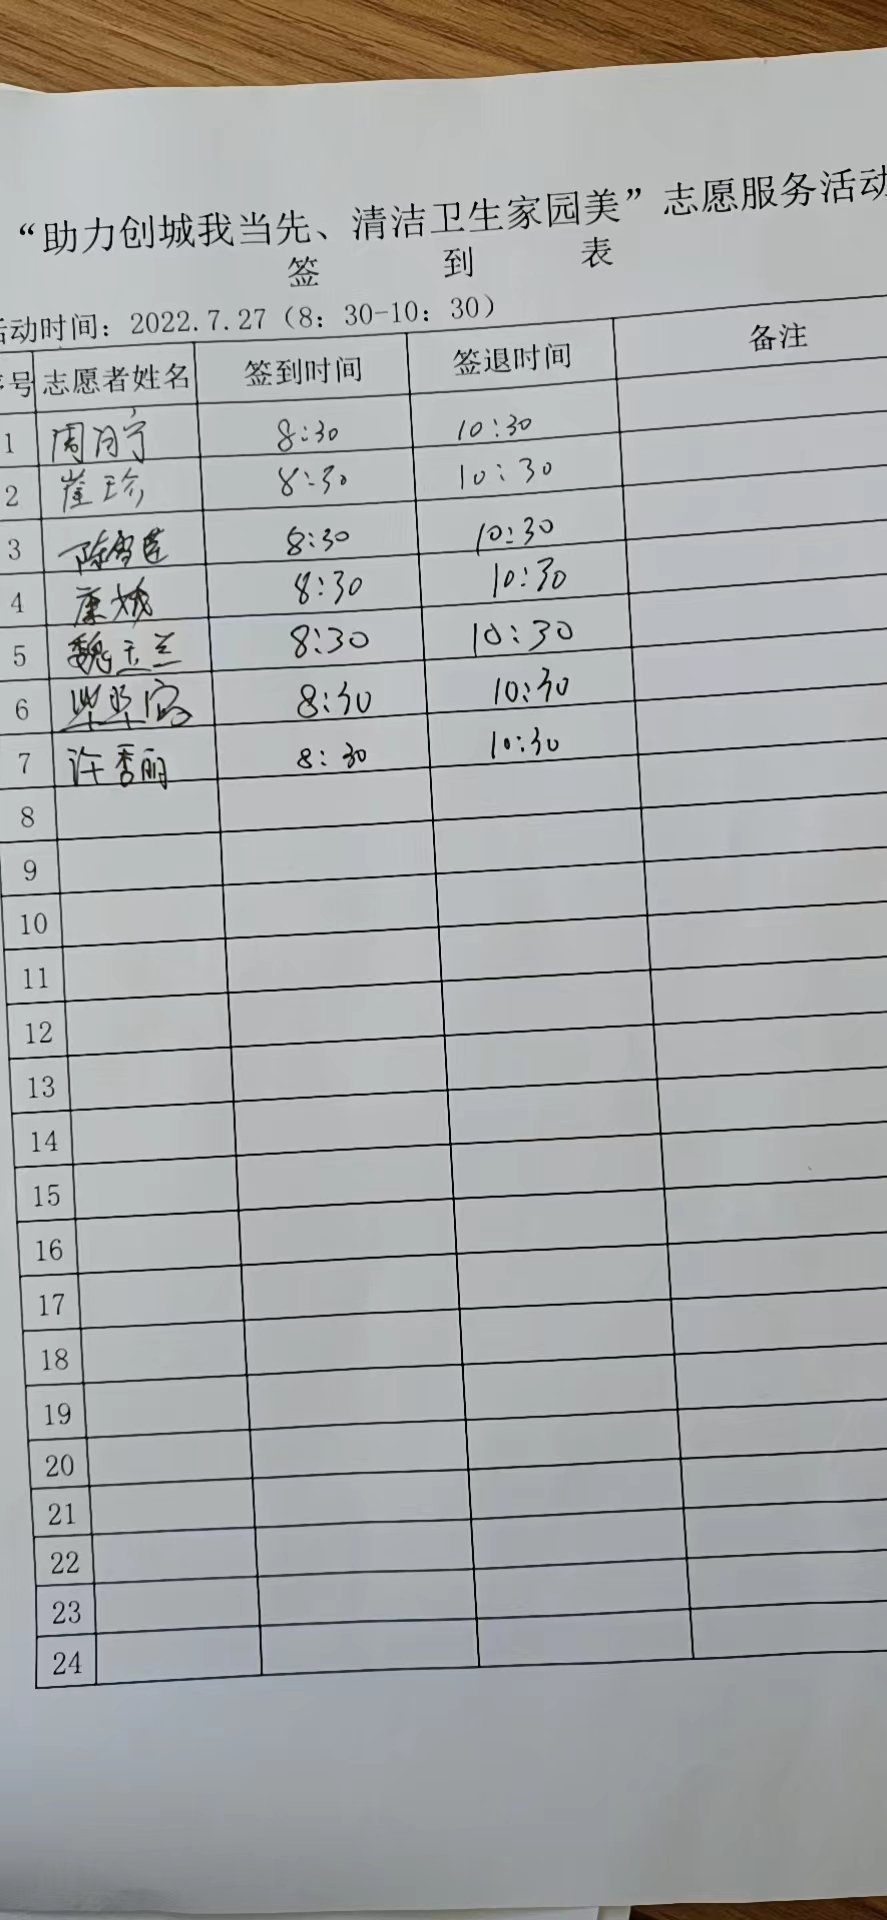 “助力创城我当先、清洁卫生家园美”志愿服务活动
签 到 表
活动时间：2022.7.27（8：30-10：30）
序号 志愿者姓名 签到时间 签退时间 备注
1 周 宁 8:30 10:30
2 崔珍 8:30 10:30
3 陈雪莲 8:30 10:30
4 康城 8:30 10:30
5 魏玉兰 8:30 10:30
6 柴 8:30 10:30
7 许秀丽 8:30 10:30
8
9
10
11
12
13
14
15
16
17
18
19
20
21
22
23
24